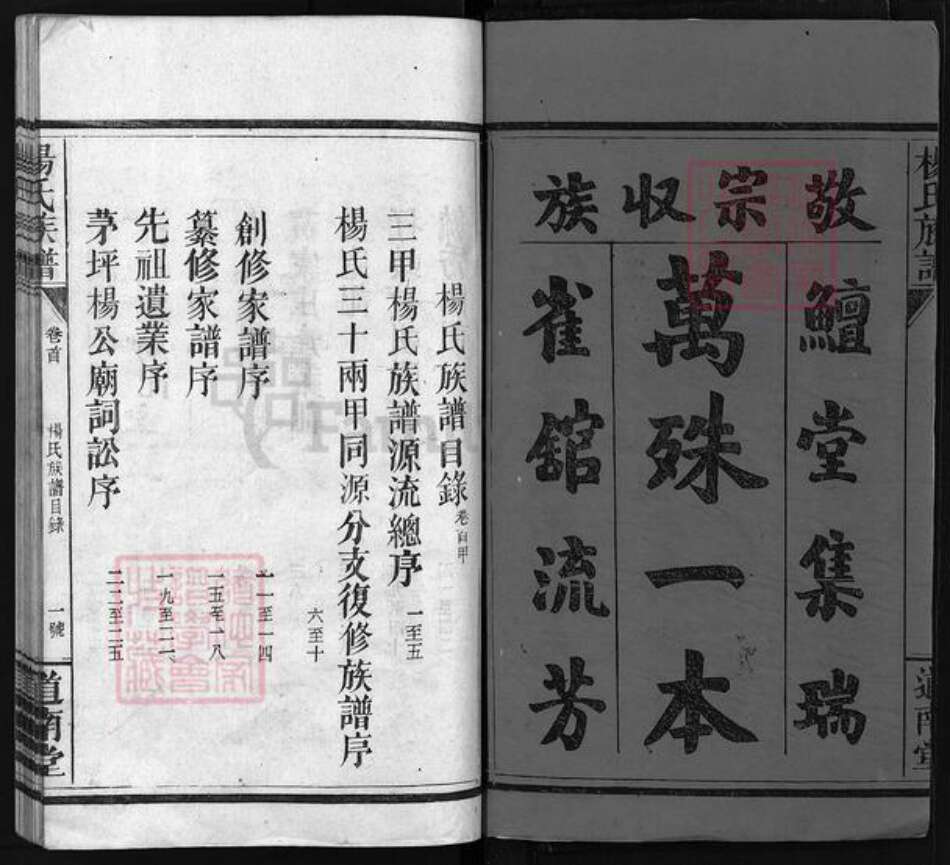 楊氏族譜
道南堂
敬宗收族
鱣堂集瑞
萬殊一本
雀舘流芳
楊氏族譜目錄 卷首甲
三甲楊氏族譜源流總序 一至五
楊氏三十兩甲同源分支復修族譜序 六至十
創修家譜序 一一至一四
纂修家譜序 一五至一八
先祖遺業序 一九至二一
茅坪楊公廟詞訟序 二二至二五
楊氏族譜 卷首 楊氏族譜目錄 一號 道南堂